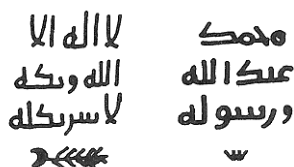 لا اله الا
الله وحده
لا شريك له
محمد
عبد الله
ورسوله